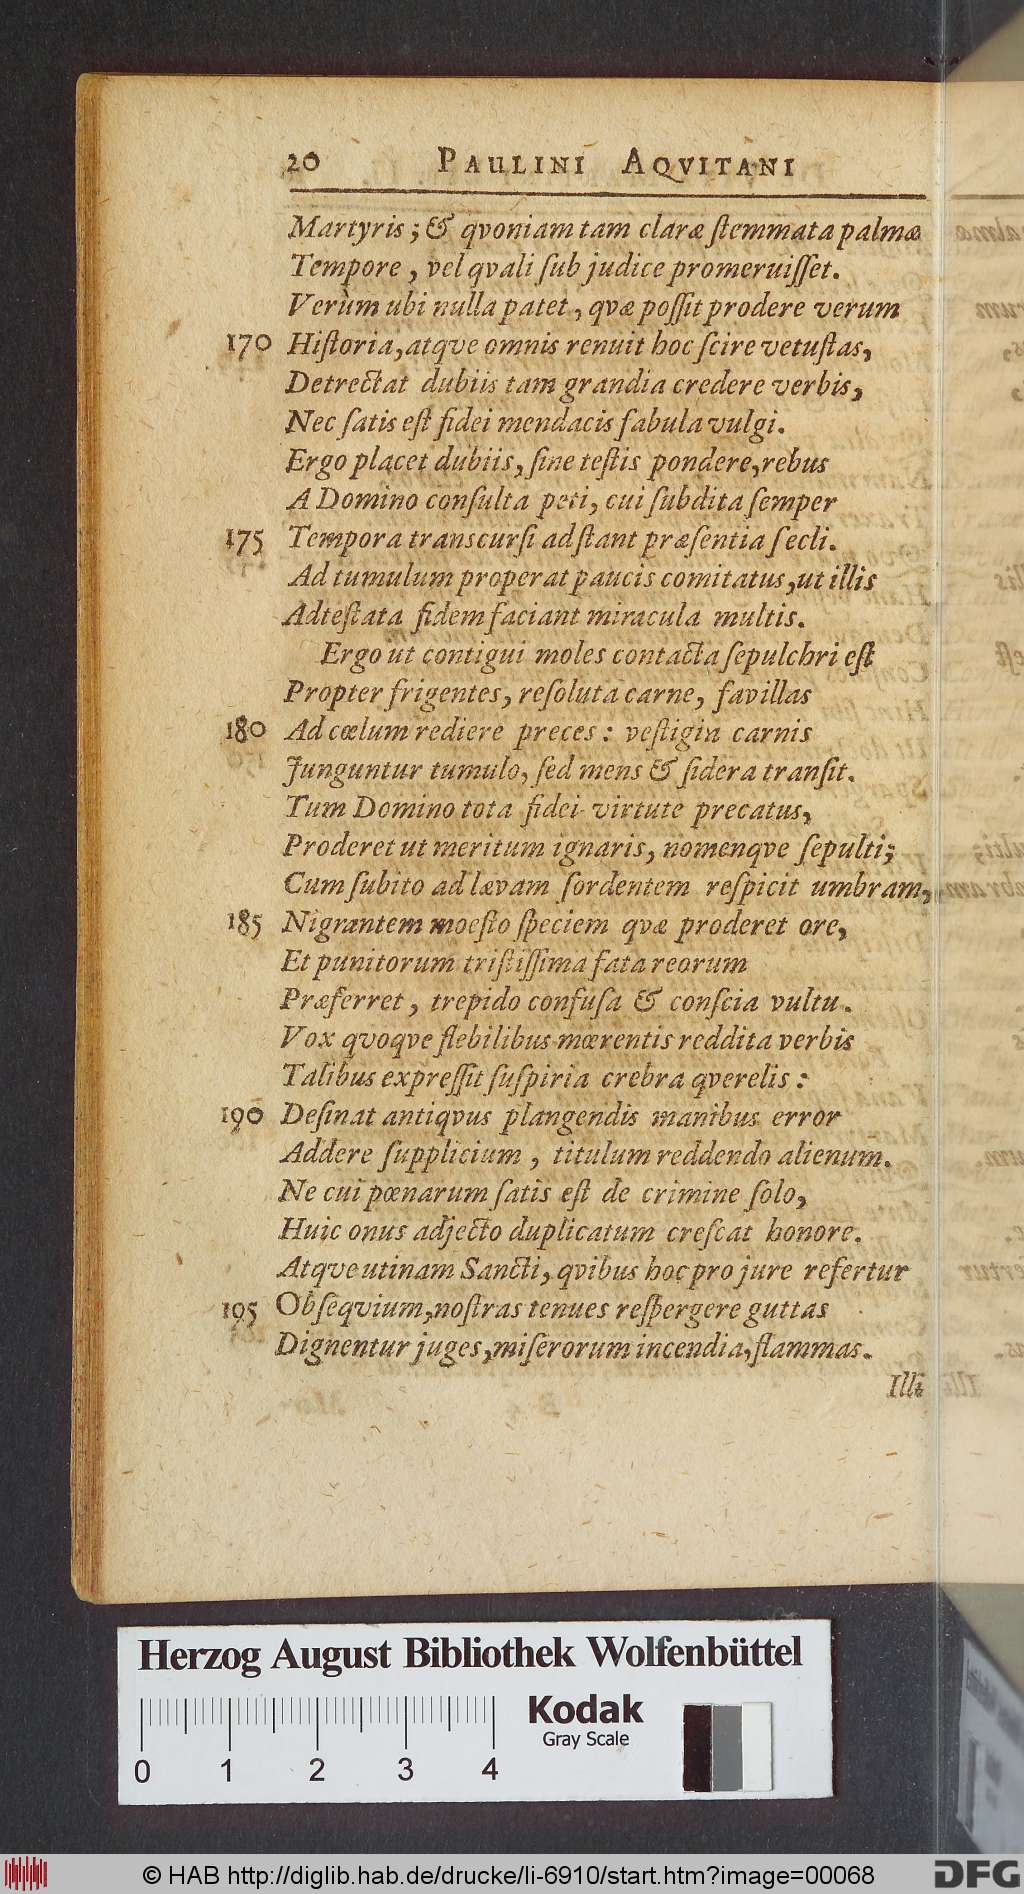 20 PAULINI AQVITANI
Martyris; & qvoniam tam claræ ſtemmata palmæ
Tempore, vel qvali ſub judice promeruiſſet.
Verùm ubi nulla patet, qvæ poſſit prodere verum
170 Hiſtoria, atqve omnis renuit hoc ſcire vetuſtas,
Detrectat dubiis tam grandia credere verbis,
Nec ſatis eſt fidei mendacis fabula vulgi.
Ergo placet dubiis, ſine teſtis pondere, rebus
A Domino conſulta peti, cui ſubdita ſemper
175 Tempora transcurſi adſtant præſentia ſecli.
Ad tumulum properat paucis comitatus, ut illis
Adteſtata fidem faciant miracula multis.
Ergo ut contigui moles contacta ſepulchri eſt
Propter frigentes, reſoluta carne, favillas
180 Ad cœlum rediere preces: veſtigia carnis
Junguntur tumulo, ſed mens & ſidera tranſit.
Tum Domino tota fidei virtute precatus,
Proderet ut meritum ignaris, nomenqve ſepulti;
Cum ſubito ad lævam ſordentem reſpicit umbram,
185 Nigrantem moeſto ſpeciem qvæ proderet ore,
Et punitorum triſtiſſima fata reorum
Præferret, trepido confuſa & conſcia vultu.
Vox qvoqve flebilibus mœrentis reddita verbis
Talibus expreſſit ſuſpiria crebra qverelis:
190 Deſinat antiqvus plangendis manibus error
Addere ſupplicium, titulum reddendo alienum.
Ne cui pœnarum ſatis eſt de crimine ſolo,
Huic onus adjecto duplicatum creſcat honore.
Atqve utinam Sancti, qvibus hoc pro jure refertur
195 Obſeqvium, noſtras tenues reſpergere guttas
Dignentur juges, miſerorum incendia, flammas.
Illi
Herzog August Bibliothek Wolfenbüttel
Kodak
Gray Scale
0 1 2 3 4
© HAB http://diglib.hab.de/drucke/li-6910/start.htm?image=00068
DFG